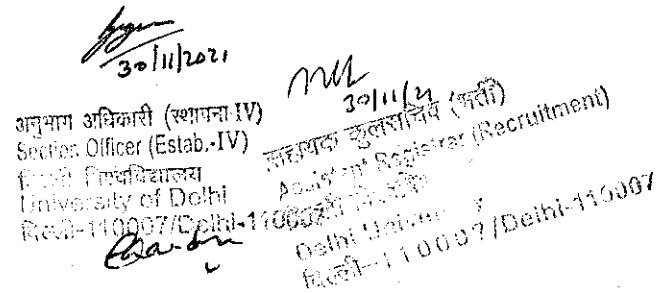 30/11/2021
अनुभाग अधिकारी (स्थापना-IV)
Section Officer (Estab.-IV)
दिल्ली विश्वविद्यालय
University of Delhi
दिल्ली-110007/Delhi-110007
30/11/21
सहायक कुलसचिव (भर्ती)
Assistant Registrar (Recruitment)
Delhi
दिल्ली-110007/Delhi-110007